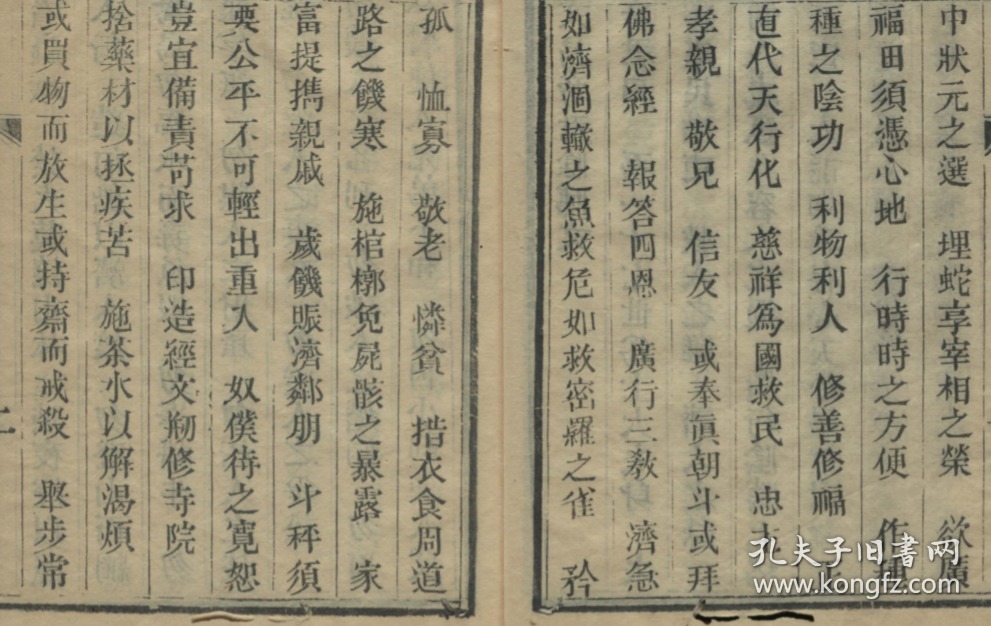 中狀元之選　埋蛇享宰相之榮　欲廣
福田須憑心地　行時時之方便　作種
種之陰功　利物利人　修善修福
直代天行化　慈祥爲國救民　忠主
孝親　敬兄　信友　或奉眞朝斗或拜
佛念經　報答四恩　廣行三敎　濟急
如濟涸轍之魚救危如救密羅之雀　矜
孤　恤寡　敬老　憐貧　措衣食周道
路之饑寒　施棺槨免屍骸之暴露　家
富提攜親戚　歲饑賑濟鄰朋　斗秤須
要公平不可輕出重入　奴僕待之寬恕
豈宜備責苛求　印造經文刱修寺院
捨藥材以拯疾苦　施茶水以解渴煩
或買物而放生或持齋而戒殺　舉步常
二
孔夫子旧書网
www.kongfz.com